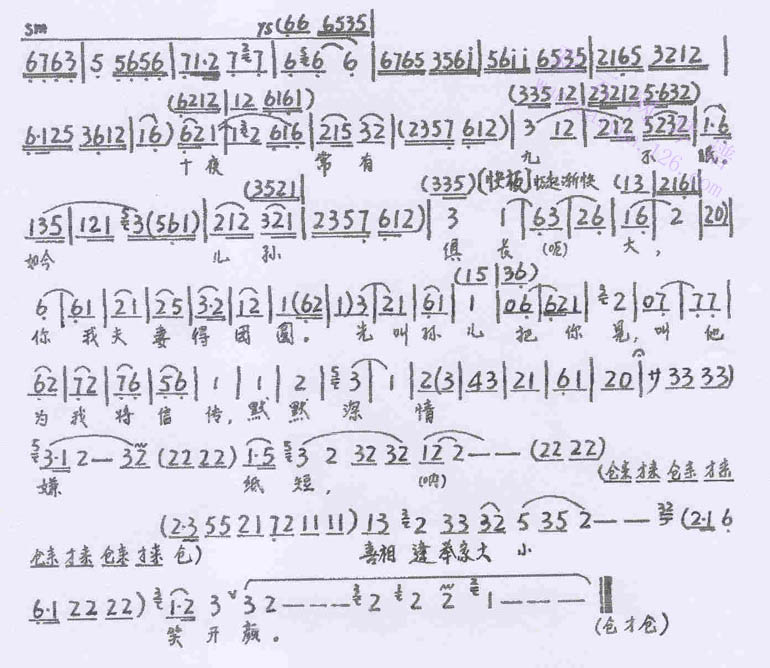 sm ys(66 6535|
6763|5 5656|71·2 7 7|6 6 6|6765 356i|56ii 6535|2165 3212|
(6212|12 6161) (335 12|23212 5·632)
6·125 3612|16) 621|1 2 616|215 32|(2357 612)|3 12|212 5232|1·6
十夜 常有 九 不 眠。
(3521) (335) (快板) (13|2161)
135|121 3(561)|212 321|2357 612)|3 1|63|26|16|2|20)|
如今 儿孙 俱长(呃)大,
(15|36)
6|61|21|25|3·2|12|1(62|1)3|21|61|1|06|621|2|07|77|
你我夫妻得团圆。先叫孙儿把你见,叫他
62|72|76|56|1|1|2|3|1|2(3|43|21|61|20|サ33 33)
为我将信传,默默深情
3·1 2— 32 (22 22) 1·5 3 2 32 32 12 2—— (22 22)
嫌 纸短, (呐) (仓来 才来 仓来 才来
(2·3 55 21 72 11 11) 13 2 33 32 5 35 2—— (2·1 6
仓来 才来 仓来 才来 仓) 喜相逢举家大小
6·1 22 22) 1·2 3 3 2——— 2 2 2 1———
笑开颜。 (仓才仓)